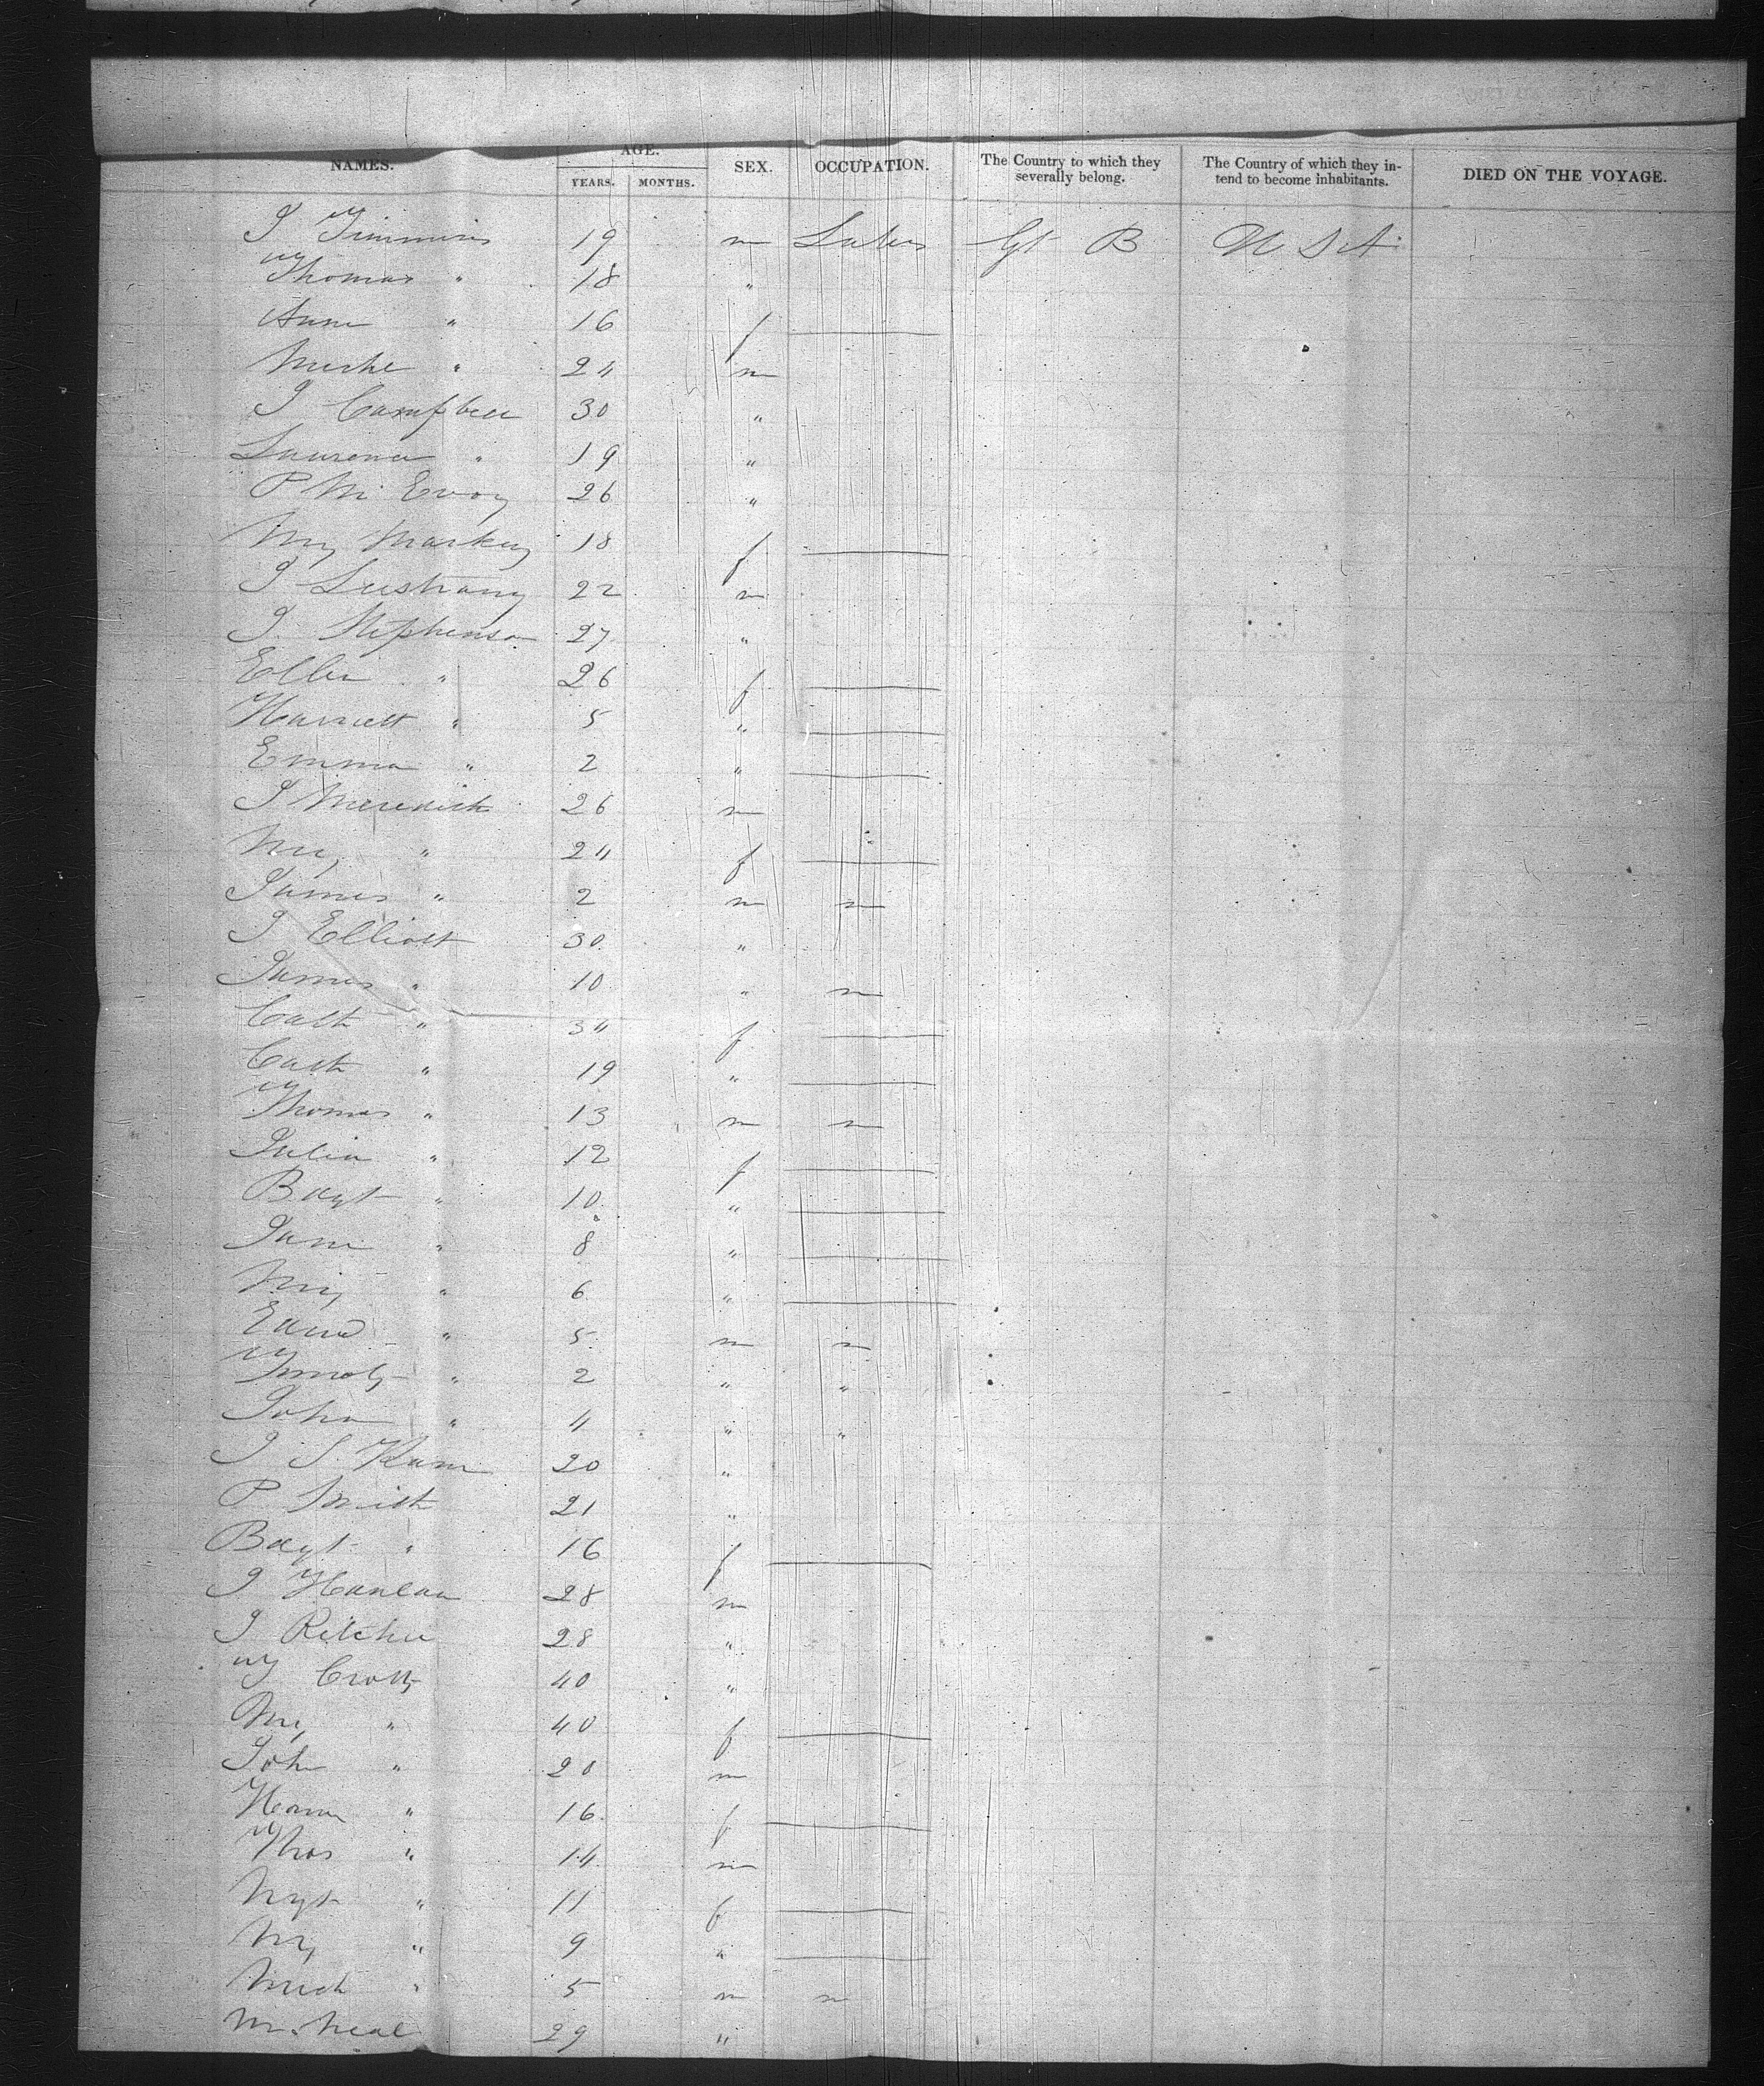 NAMES. AGE. YEARS. MONTHS. SEX. OCCUPATION. The Country to which they severally belong. The Country of which they intend to become inhabitants. DIED ON THE VOYAGE.
J Timmins 19 m Labr Gt B U S A
Thomas " 18 "
Anne " 16 f
Miche " 24 m
J Campbell 30 "
Laurence " 19 "
P McEvoy 26 "
My Markey 18 f
J 22 m
J. Stephenson 27 "
Ellen " 26 f
Harriett " 5 "
Emma " 2 "
J Meredith 26 m
My " 24 f
James " 2 m m
J Elliott 30 "
James " 10 " m
Cath " 34 f
Cath " 19 "
Thomas " 13 m m
Julia " 12 f
Bdgt " 10 "
Jane " 8 "
My " 6 "
Edwd " 5 m m
Timoty " 2 " "
John " 4 " "
J S Kane 20 "
P Smith 21 "
Bdgt " 16 f
J Hanlan 28 m
J Ritchie 28 "
T Crotty 40 "
My " 40 f
John " 20 m
Honor " 16 f
Thos " 14 m
Mgt " 11 f
My " 9 "
Mich " 5 m m
M. Neal 29 "